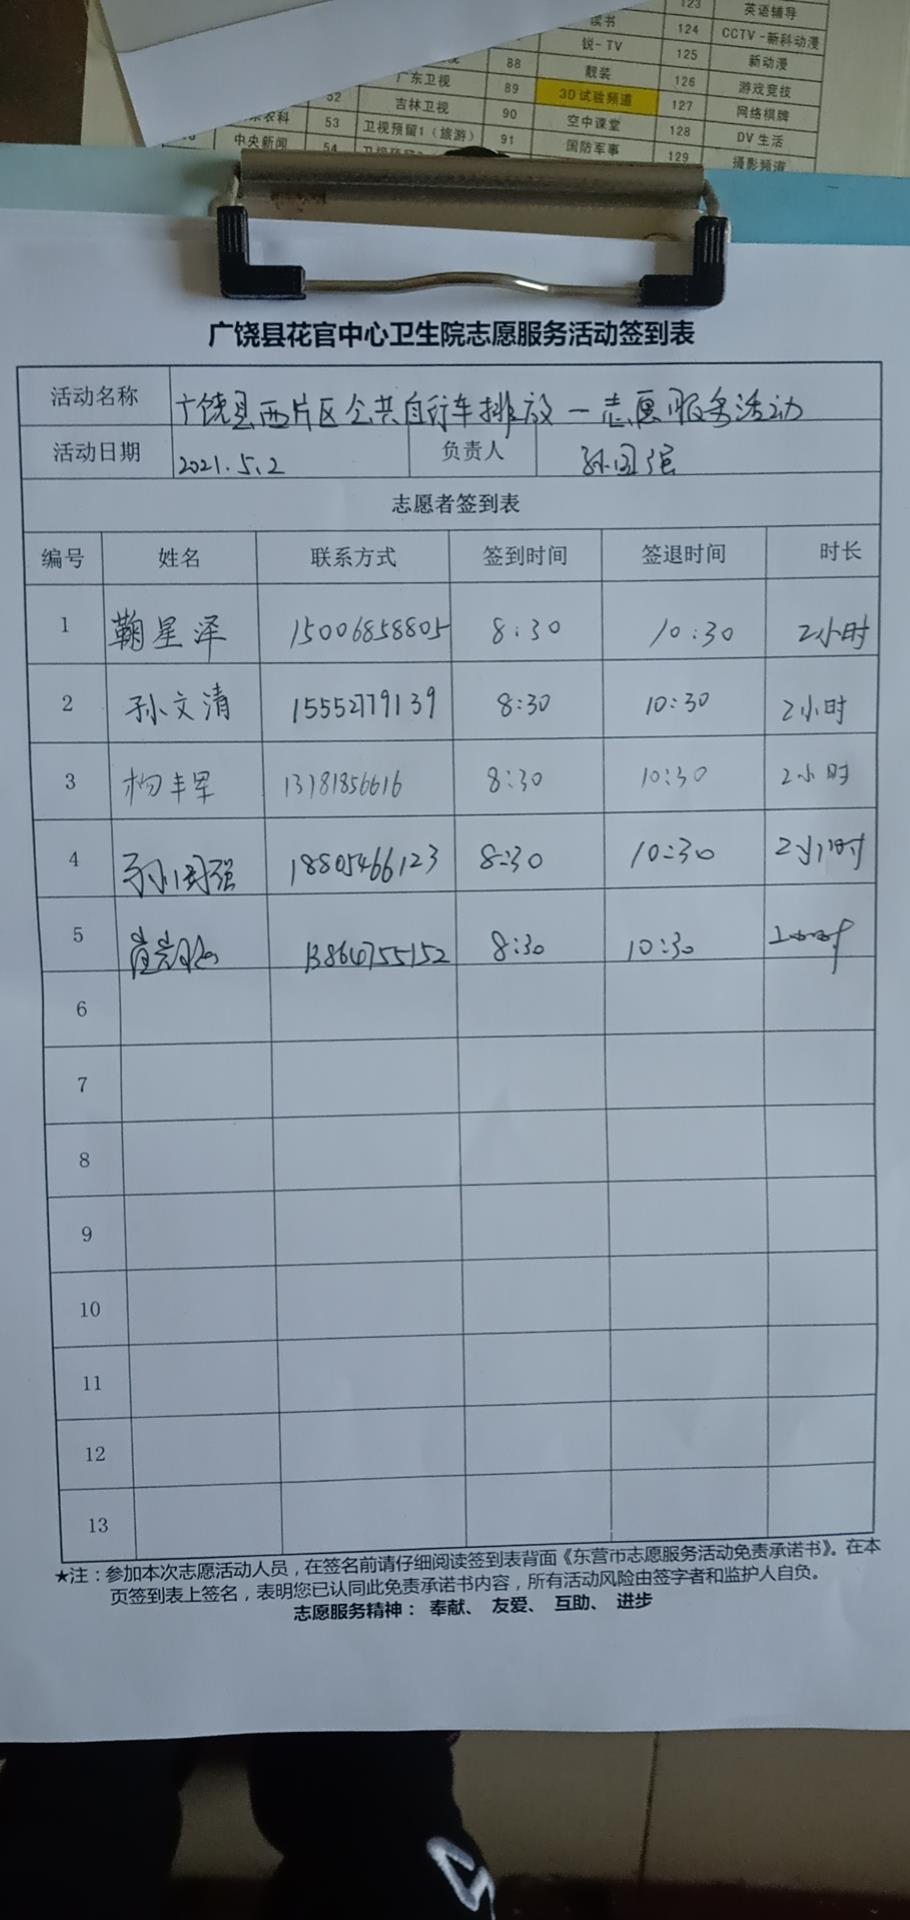 123 英语辅导
读书 124 CCTV-新科动漫
锐-TV 125 新动漫
88 靓装 126 游戏竞技
广东卫视 89 3D试验频道 127 网络棋牌
52 吉林卫视 90 空中课堂 128 DV生活
农科 53 卫视预留1（旅游） 91 国防军事 129 摄影频道
中央新闻 54
广饶县花官中心卫生院志愿服务活动签到表
活动名称 广饶县西片区公共自行车排放一志愿服务活动
活动日期 2021.5.2 负责人 孙国强
志愿者签到表
编号 姓名 联系方式 签到时间 签退时间 时长
1 鞠星泽 15006858805 8:30 10:30 2小时
2 孙文清 15552779139 8:30 10:30 2小时
3 杨丰军 13181856616 8:30 10:30 2小时
4 孙国强 18805466123 8:30 10:30 2小时
5 13864755152 8:30 10:30 2小时
6
7
8
9
10
11
12
13
★注：参加本次志愿活动人员，在签名前请仔细阅读签到表背面《东营市志愿服务活动免责承诺书》。在本
页签到表上签名，表明您已认同此免责承诺书内容，所有活动风险由签字者和监护人自负。
志愿服务精神： 奉献、 友爱、 互助、 进步